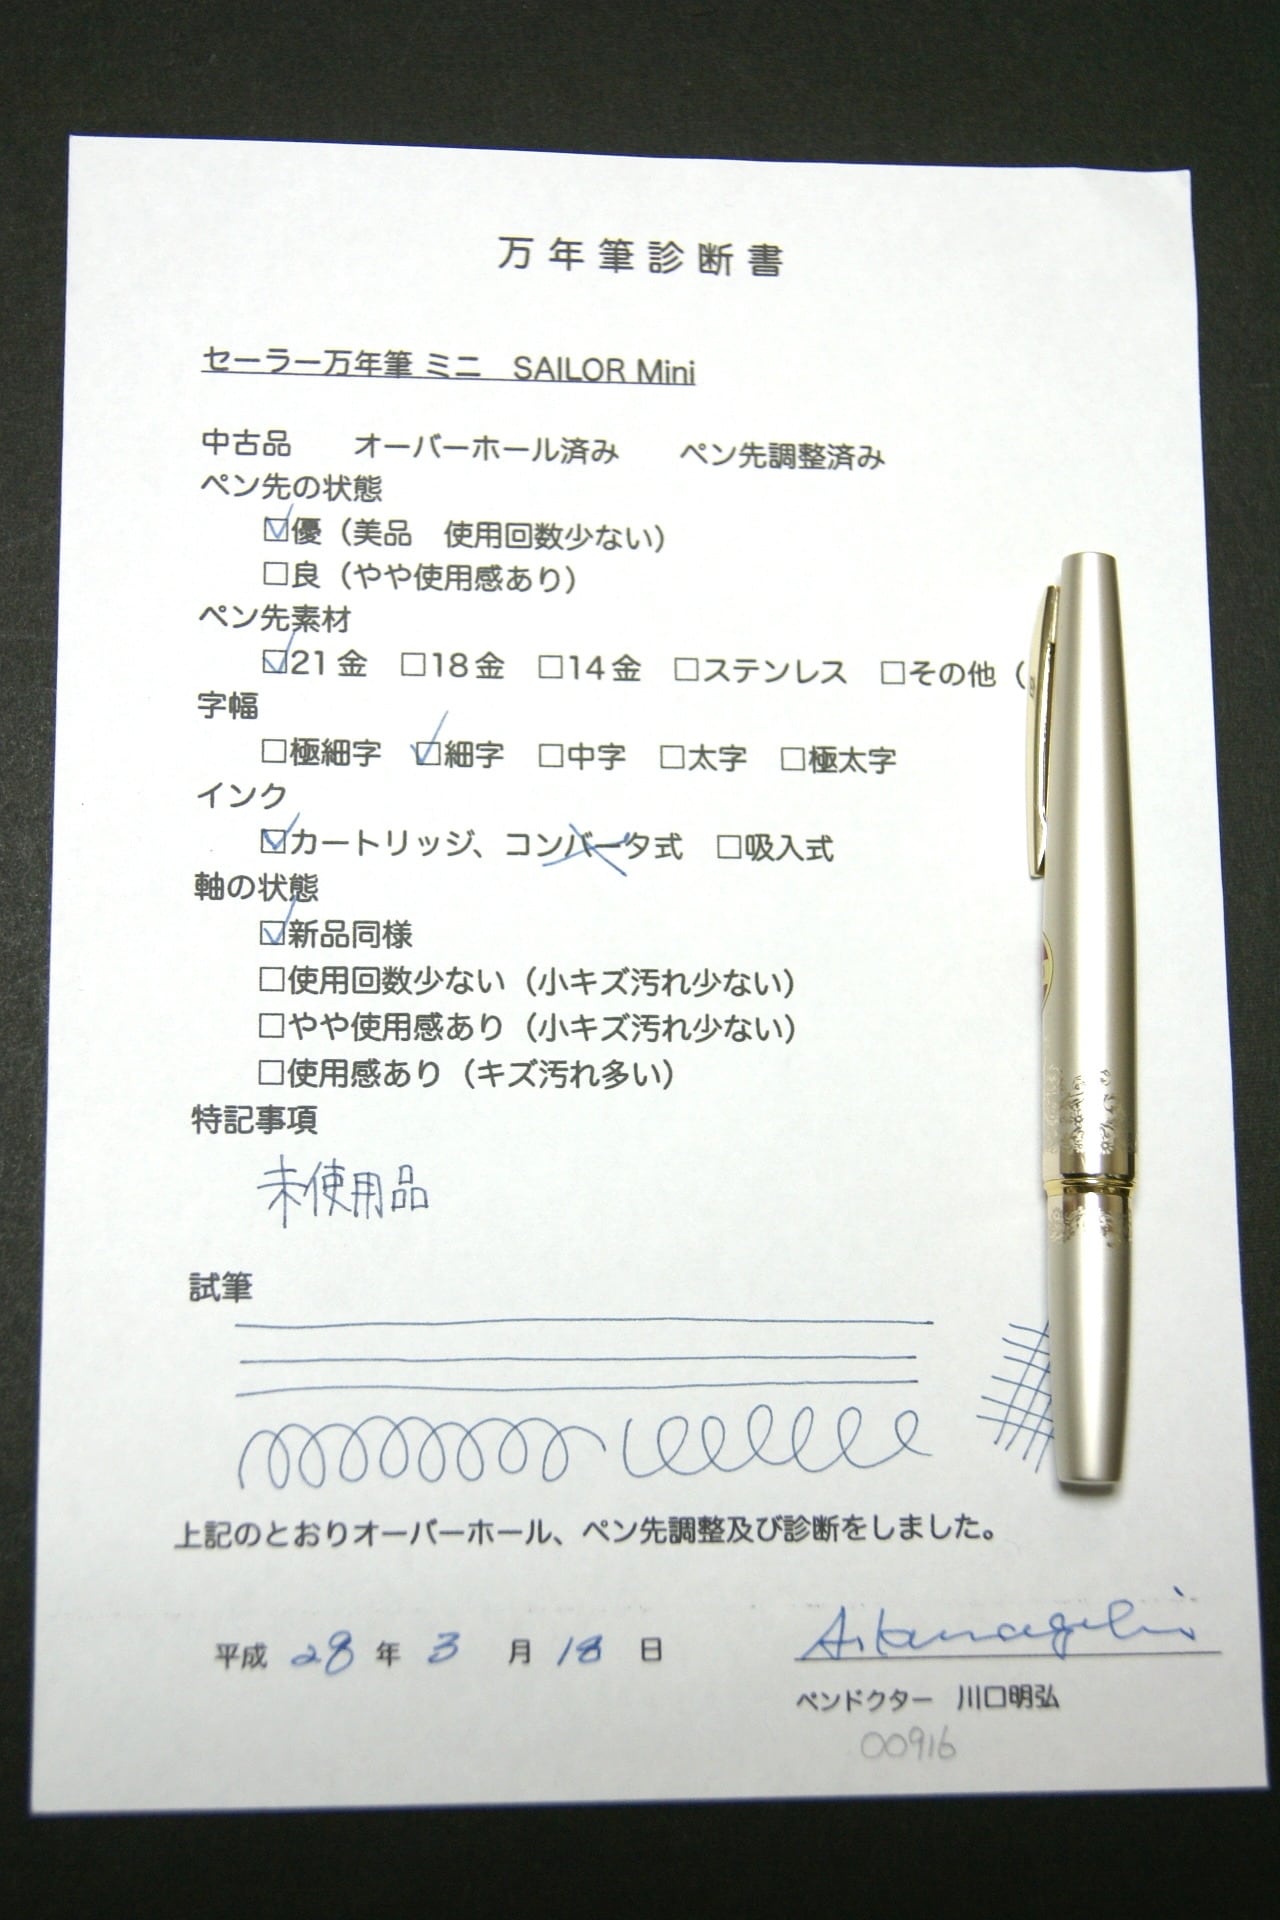 万年筆診断書
セーラー万年筆 ミニ　SAILOR Mini
中古品　オーバーホール済み　ペン先調整済み
ペン先の状態
☑優（美品　使用回数少ない）
□良（やや使用感あり）
ペン先素材
☑21金　□18金　□14金　□ステンレス　□その他（
字幅
□極細字　☑細字　□中字　□太字　□極太字
インク
☑カートリッジ、コンバータ式　□吸入式
軸の状態
☑新品同様
□使用回数少ない（小キズ汚れ少ない）
□やや使用感あり（小キズ汚れ少ない）
□使用感あり（キズ汚れ多い）
特記事項
未使用品
試筆
上記のとおりオーバーホール、ペン先調整及び診断をしました。
平成 28 年 3 月 18 日
ペンドクター　川口明弘
00916